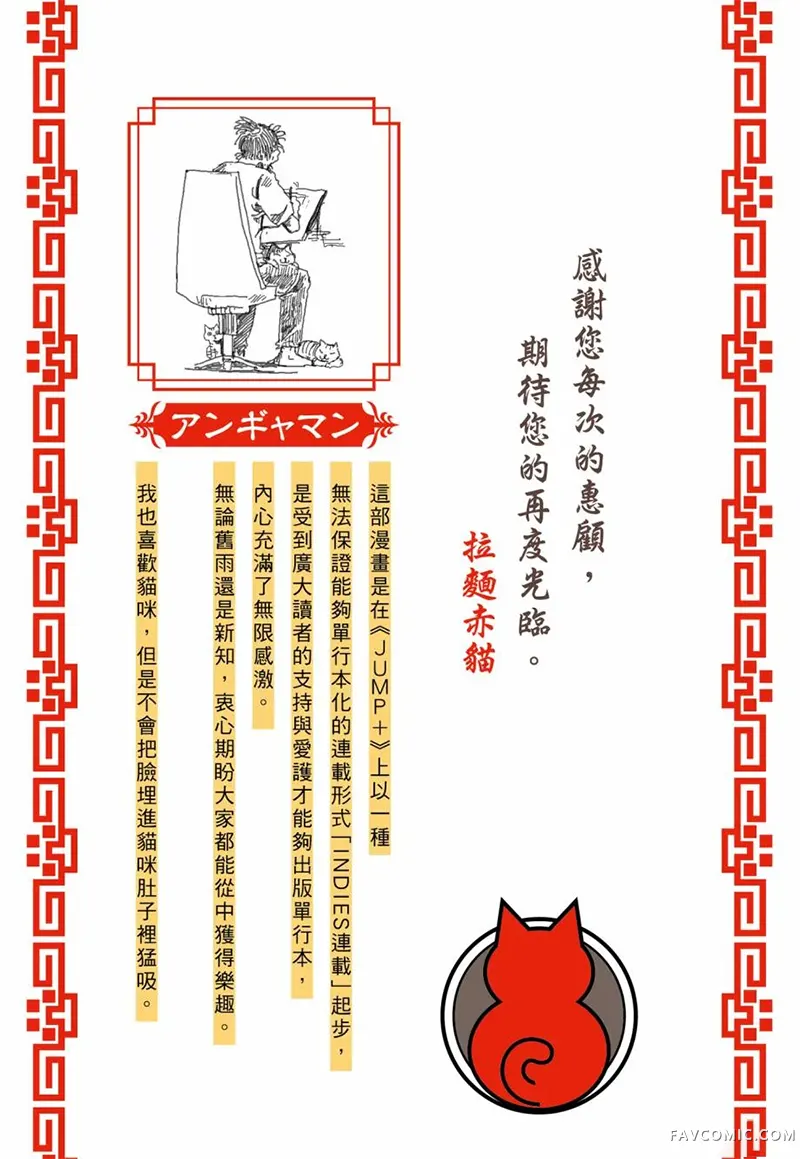 感謝您每次的惠顧，
期待您的再度光臨。
拉麵赤貓
アンギャマン
這部漫畫是在《JUMP＋》上以一種
無法保證能夠單行本化的連載形式「INDIES連載」起步，
是受到廣大讀者的支持與愛護才能夠出版單行本，
內心充滿了無限感激。
無論舊雨還是新知，衷心期盼大家都能從中獲得樂趣。
我也喜歡貓咪，但是不會把臉埋進貓咪肚子裡猛吸。
FAVCOMIC.COM